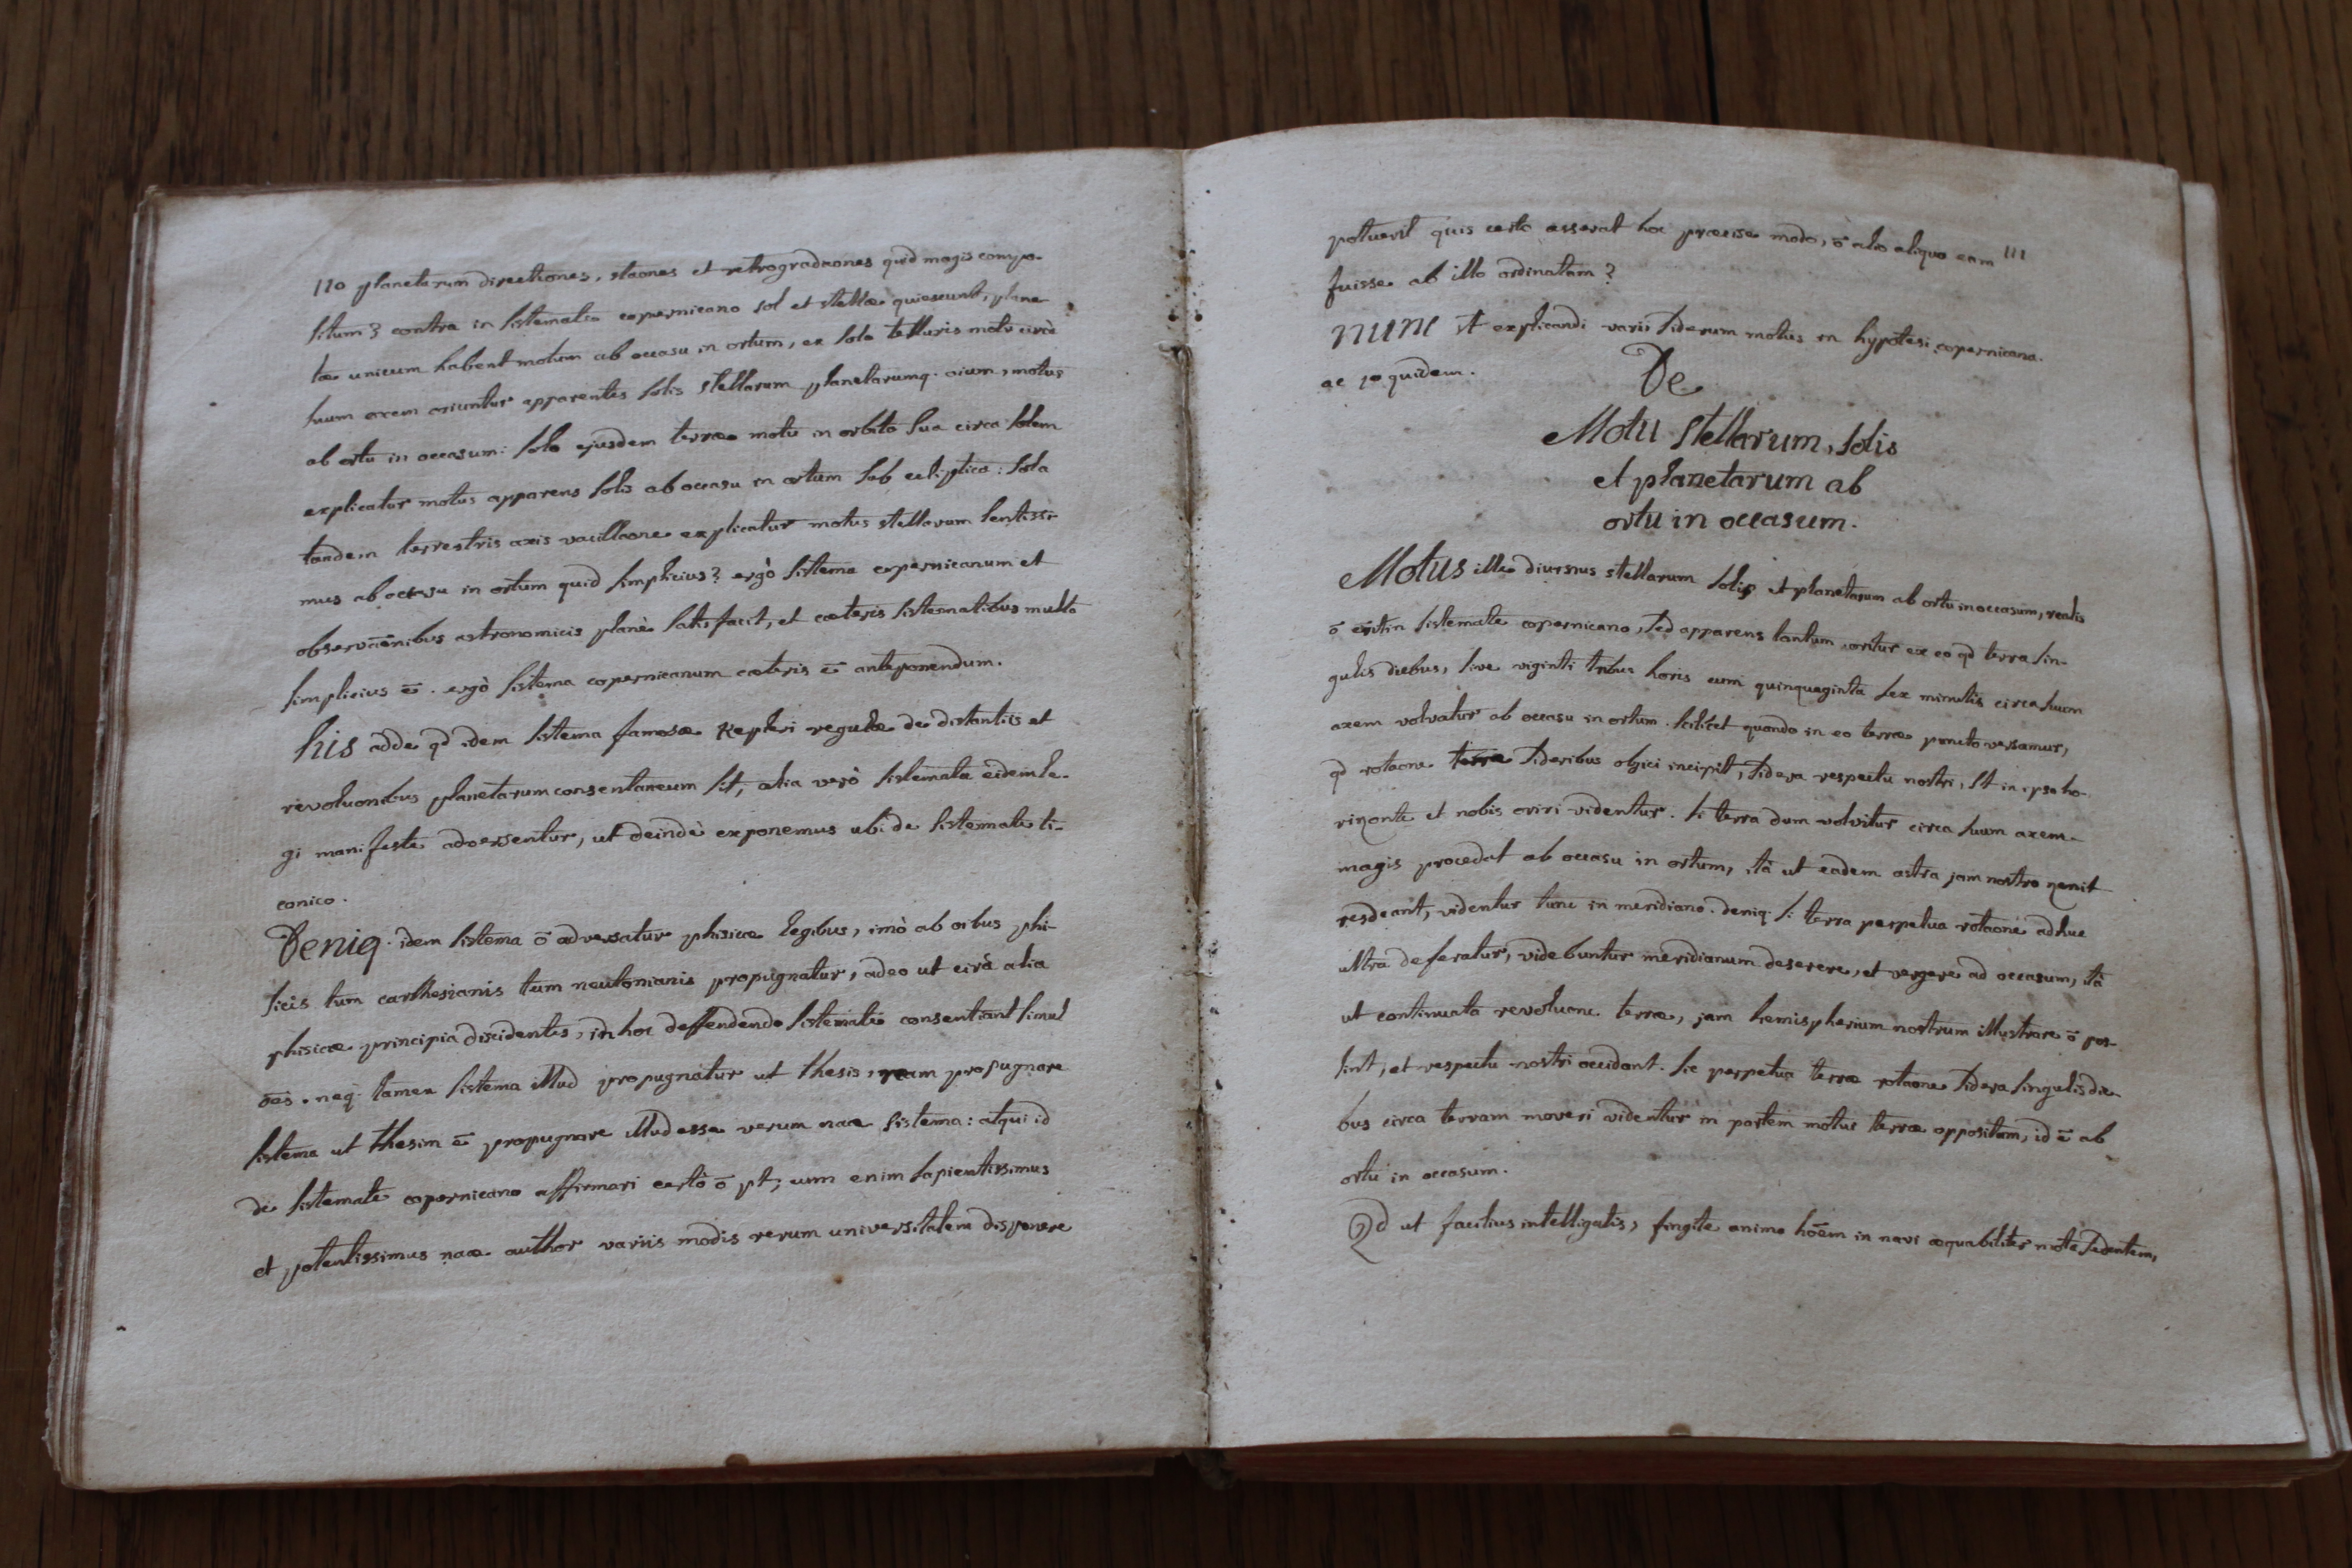 110 planetarum directiones, staones et retrogradaones quid magis compo-
situm? contra in sistemate copernicano sol et stellæ quiescunt, plane-
tæ unicum habent motum ab occasu in ortum, ex solo telluris motu circà
suum axem oriuntur apparentes solis stellarum planetarumq. oium, motus
ab ortu in occasum: solo ejusdem terræ motu in orbita sua circa solem
explicatur motus apparens solis ab occasu in ortum sub ecliptica: sola
tandem terrestris axis vacillaone explicatur motus stellarum lentissi-
mus ab occasu in ortum quid simplicius? ergò sistema copernicanum et
observāonibus astronomicis planè satisfacit, et cæteris sistematibus multo
simplicius ē. ergò sistema copernicanum cæteris ē anteponendum.
his adde qd idem sistema famosæ Kepleri regulæ de distantiis et
revoluonibus planetarum consentaneum sit, alia verò sistemata eidem le-
gi manifeste adversentur, ut deindè exponemus ubi de sistemate ti-
conico.
Deniq. idem sistema ō adversatur phisicæ legibus, imò ab oibus phi-
sicis tum carthesianis tum neutonianis propugnatur, adeo ut circà alia
phisicæ principia discidentes, in hoc deffendendo sistemate consentiant simul
ōes. neq. tamen sistema illud propugnatur ut thesis, nam propugnare
sistema ut thesim ē propugnare illud esse verum naæ sistema: atqui id
de sistemate copernicano affirmari certò ō pt; cum enim sapientissimus
et potentissimus naæ author variis modis rerum universitatem disponere
potuerit quis certo asserat hoc præcise modo, ō alio aliquo eam 111
fuisse ab illo ordinatam?
nunc st explicandi varii siderum motus in hypotesi copernicana.
ac 1o quidem.
De
Motu stellarum, solis
et planetarum ab
ortu in occasum.
Motus ille diurnus stellarum solis et planetarum ab ortu in occasum, realis
ō erit in sistemate copernicano, sed apparens tantum, oritur ex eo qd terra sin-
gulis diebus, sive viginti tribus horis cum quinquaginta sex minutis circa suum
axem volvatur ab occasu in ortum. scilicet quando in eo terræ puncto versamur,
qd rotaone terræ sideribus objici incipit, sidera respectu nostri, st in ipso ho-
rizonte et nobis oriri videntur. si terra dum volvitur circa suum axem
magis procedat ab occasu in ortum, ità ut eadem astra jam nostro zenit
resdeant, videntur tunc in meridiano. deniq. si terra perpetua rotaone adhuc
ultra deferatur, videbuntur meridianum deserere, et vergere ad occasum, ità
ut continuata revoluone terræ, jam hemispherium nostrum illustrare ō pos-
sint, et respectu nostri occidant. sic perpetua terræ rotaone sidera singulis die-
bus circa terram moveri videntur in partem motus terræ oppositam, id ē ab
ortu in occasum.
Qd ut facilius intelligatis, fingite animo hōem in navi æquabiliter mota sedentem,